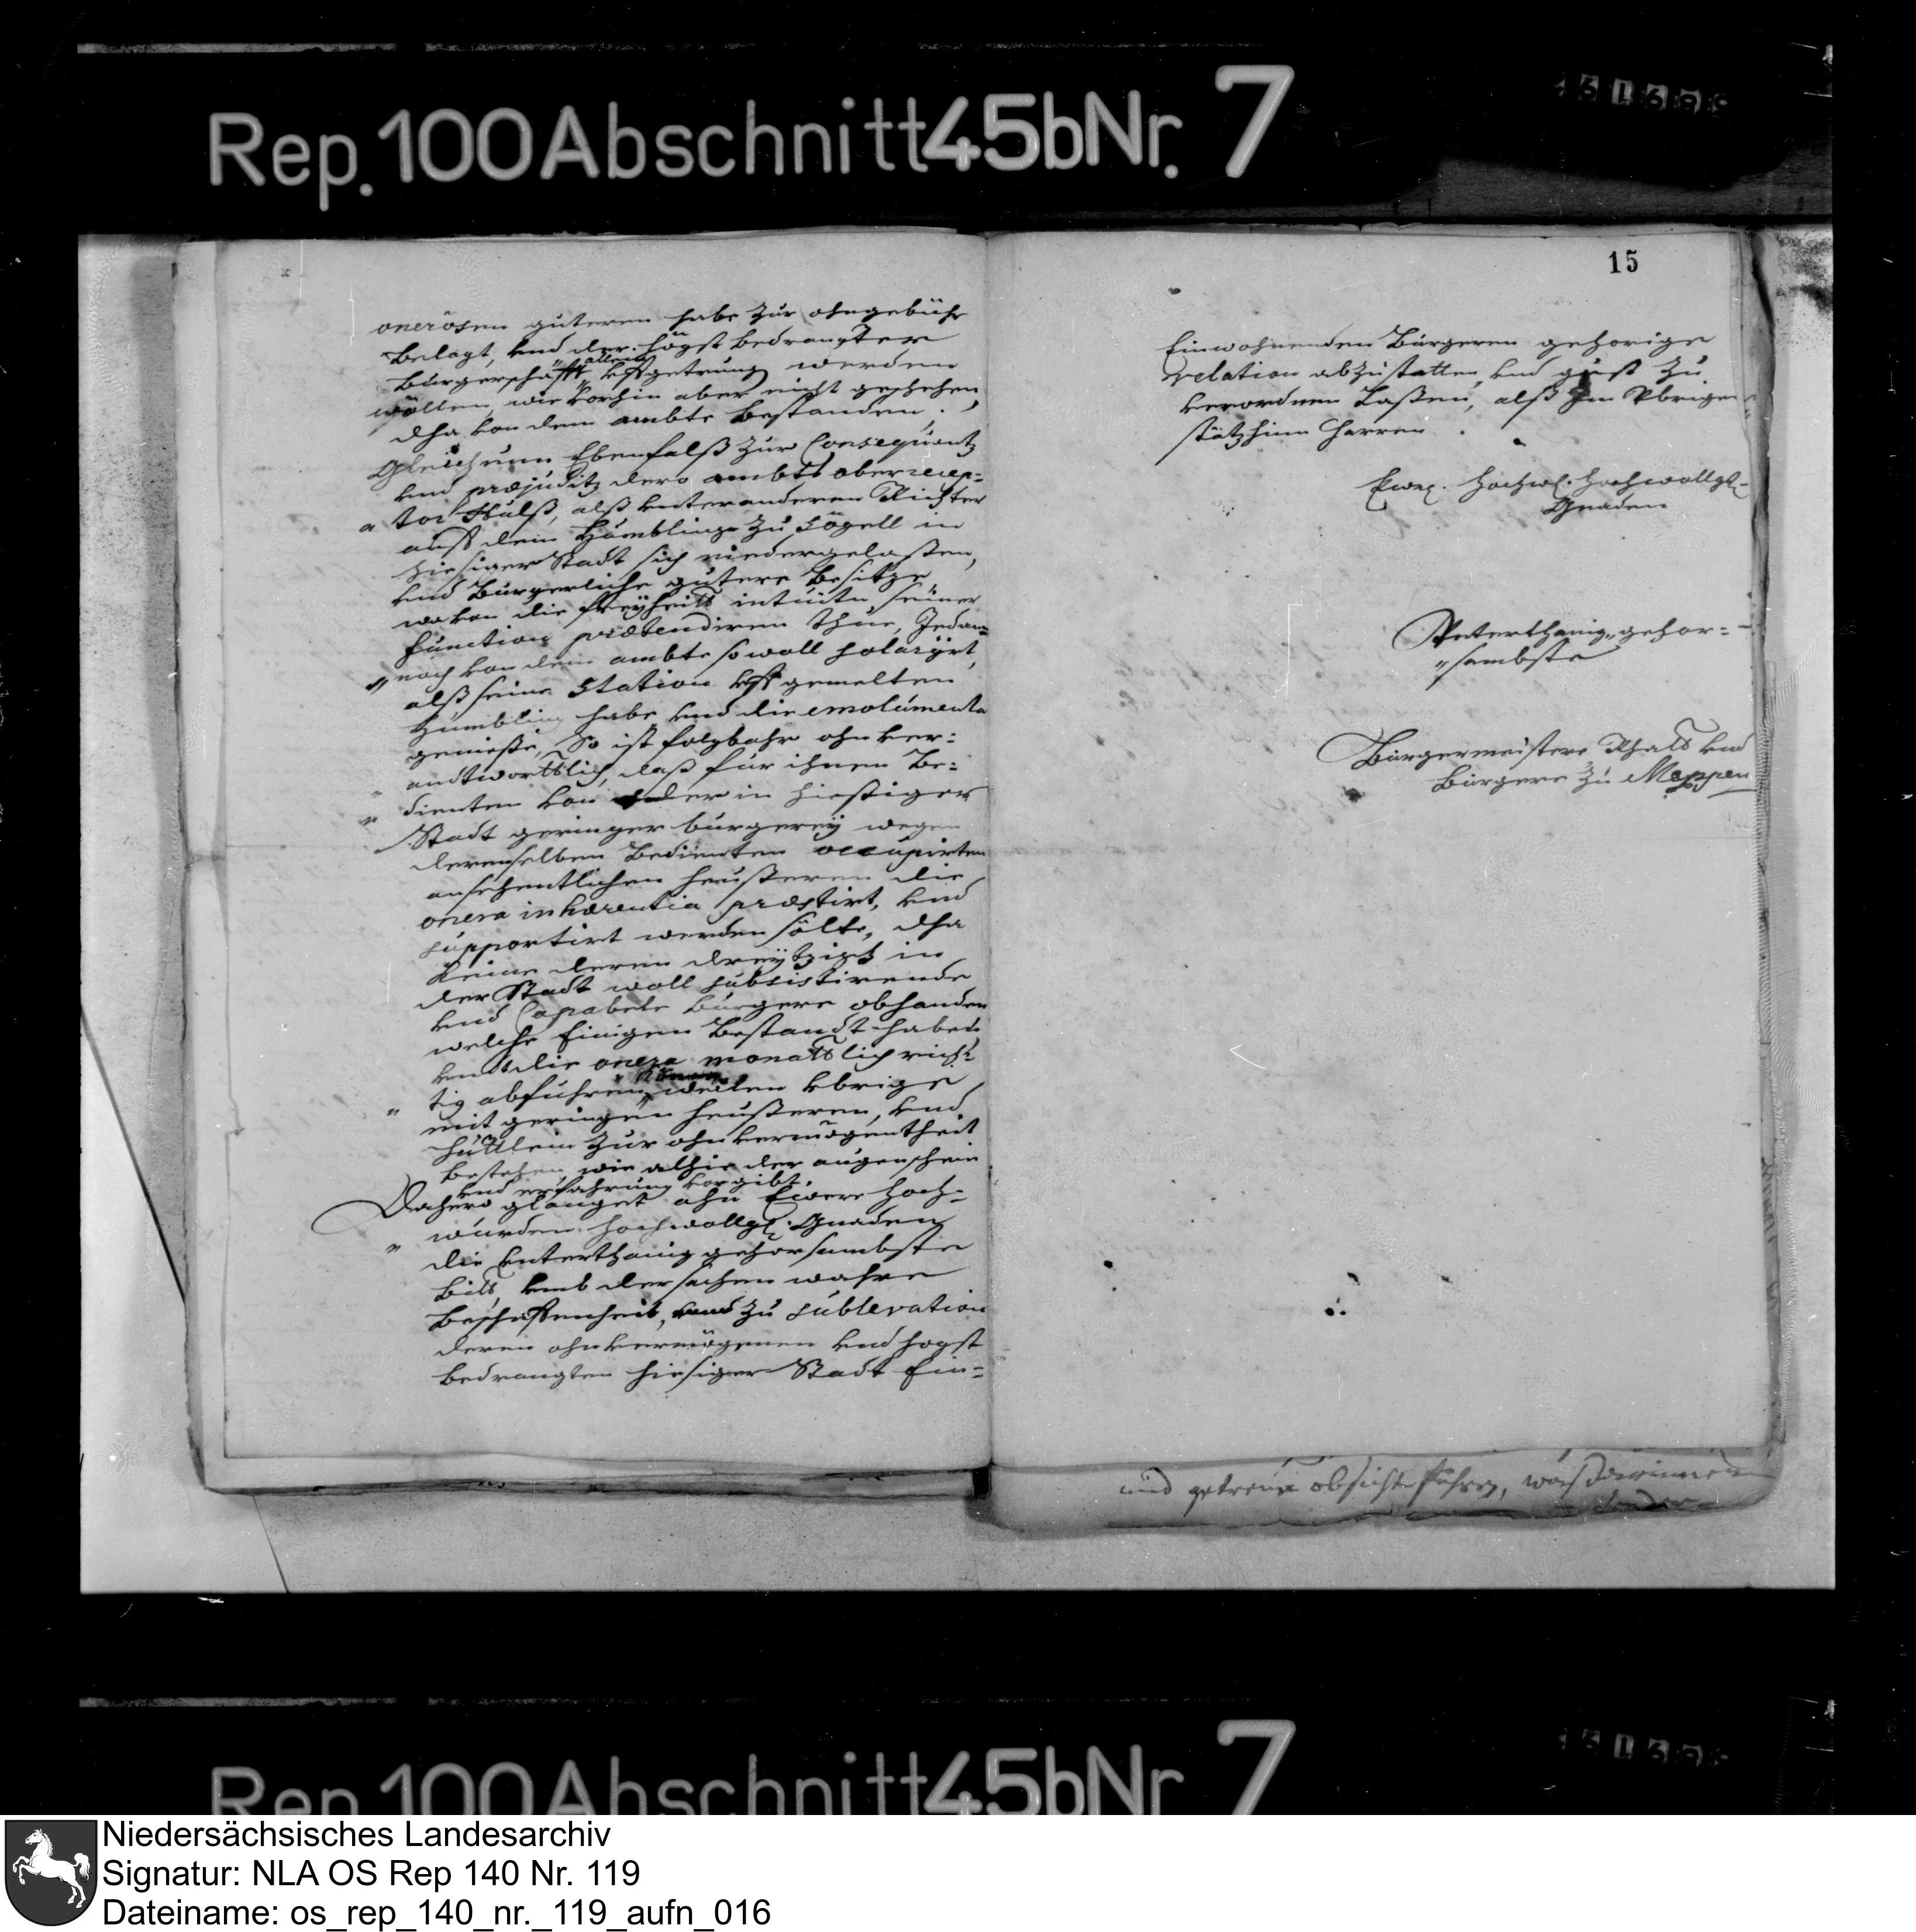 Rep. 100 Abschnitt 45b Nr. 7
onerösen guteren habe zur ohngebühr
Belagt, und der högst bedrangter
allein
Burgerschafft uffgetrung werden
wöllen, wie vorhin aber nicht geschehen,
dha von dem ambte bestanden.
Gleich nun Ebenfalß zur Consequentz
und præjuditz dero ambts oberrecep-
tor Hülß, alß unteranderen Richter
auff dem Hümblinge zu Sögell in
hiesiger Stadt sich niedergelaßen,
und Bürgerliche gütere Besitze,
wovon die freyheitt intuitu seiner
function prætendiren thue, Jedan-
noch von dem ambte so woll salariirt,
alß seine Station uff gemelten
Hümbling habe, und die emolumenta
genieße, So ist folgbahr ohnver-
andtwortlich, daß für ihnen Be-
dienten von der in hießiger
Stadt geringer bürgerey wegen
derenselben Bedienten occupirten
ansehentlichen heußeren die
onera inhærentia præstirt, und
supportirt werden sölte, dha
keine deren dreytzigh in
der Stadt woll subsistirende
und Capabele bürgere obhanden
welche Einigen Bestandt haben
und die onera monattlich rich-
können
tig abführen, weilen übrige
mit geringen heußeren, und
hüttlein zur ohnvermögentheit
bestehen, wie alhie der augenschein
und erfahrung vorgibt.
Dahero glanget ahn Ewere Hoch-
würden Hochwollgl. Gnaden
die unterthänig gehorsambste
Bitt, umb der sachen wahre
Beschaffenheit, und zu sublevation
deren ohnvermögenen und hogst
bedrangten hiesiger Stadt Ein-
15
Einwohnenden Bürgeren gehorige
relation abzustatten, und zu
verordnen Laßen, alß Im Übrigen
Ewer. Hochw. Hochwollgl.
Gnaden
Unterthänig gehor-
sambste
Bürgermeistere Rhatt und
Bürgere zu Meppen
und getreue obsicht führen, waß darinnen
Rep. 100 Abschnitt 45b Nr. 7
Niedersächsisches Landesarchiv
Signatur: NLA OS Rep 140 Nr. 119
Dateiname: os_rep_140_nr._119_aufn_016